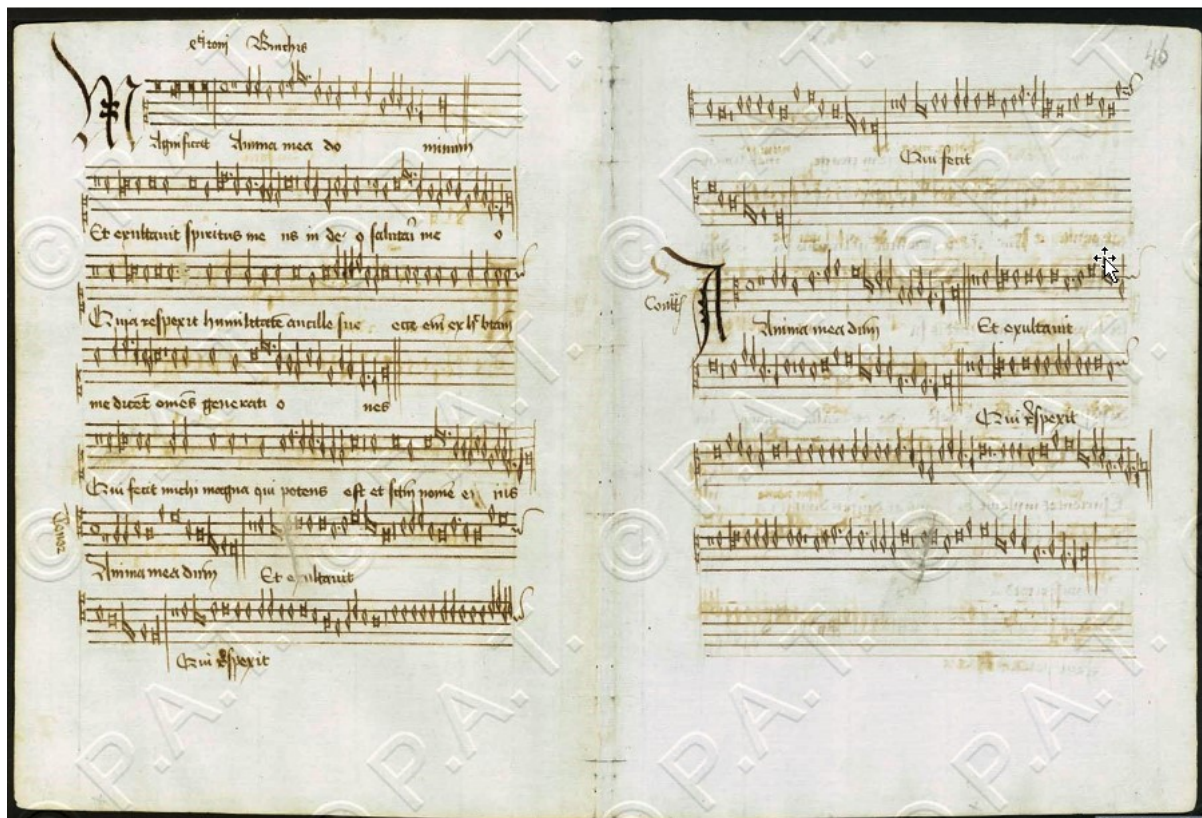 Binchois
Magnificat Anima mea do minum
Et exultavit spiritus me us in de o salutari me o
Quia respexit humilitatem ancille sue ecce eni ex hoc btam
me dicent omes generati o nes
Qui fecit michi magna qui potens est et sctm nome ei ius
Tenor
Anima mea dnm Et exultavit
Qui respexit
46
Qui fecit
Anima mea dnm Et exultavit
Qui respexit
© P.A.T.